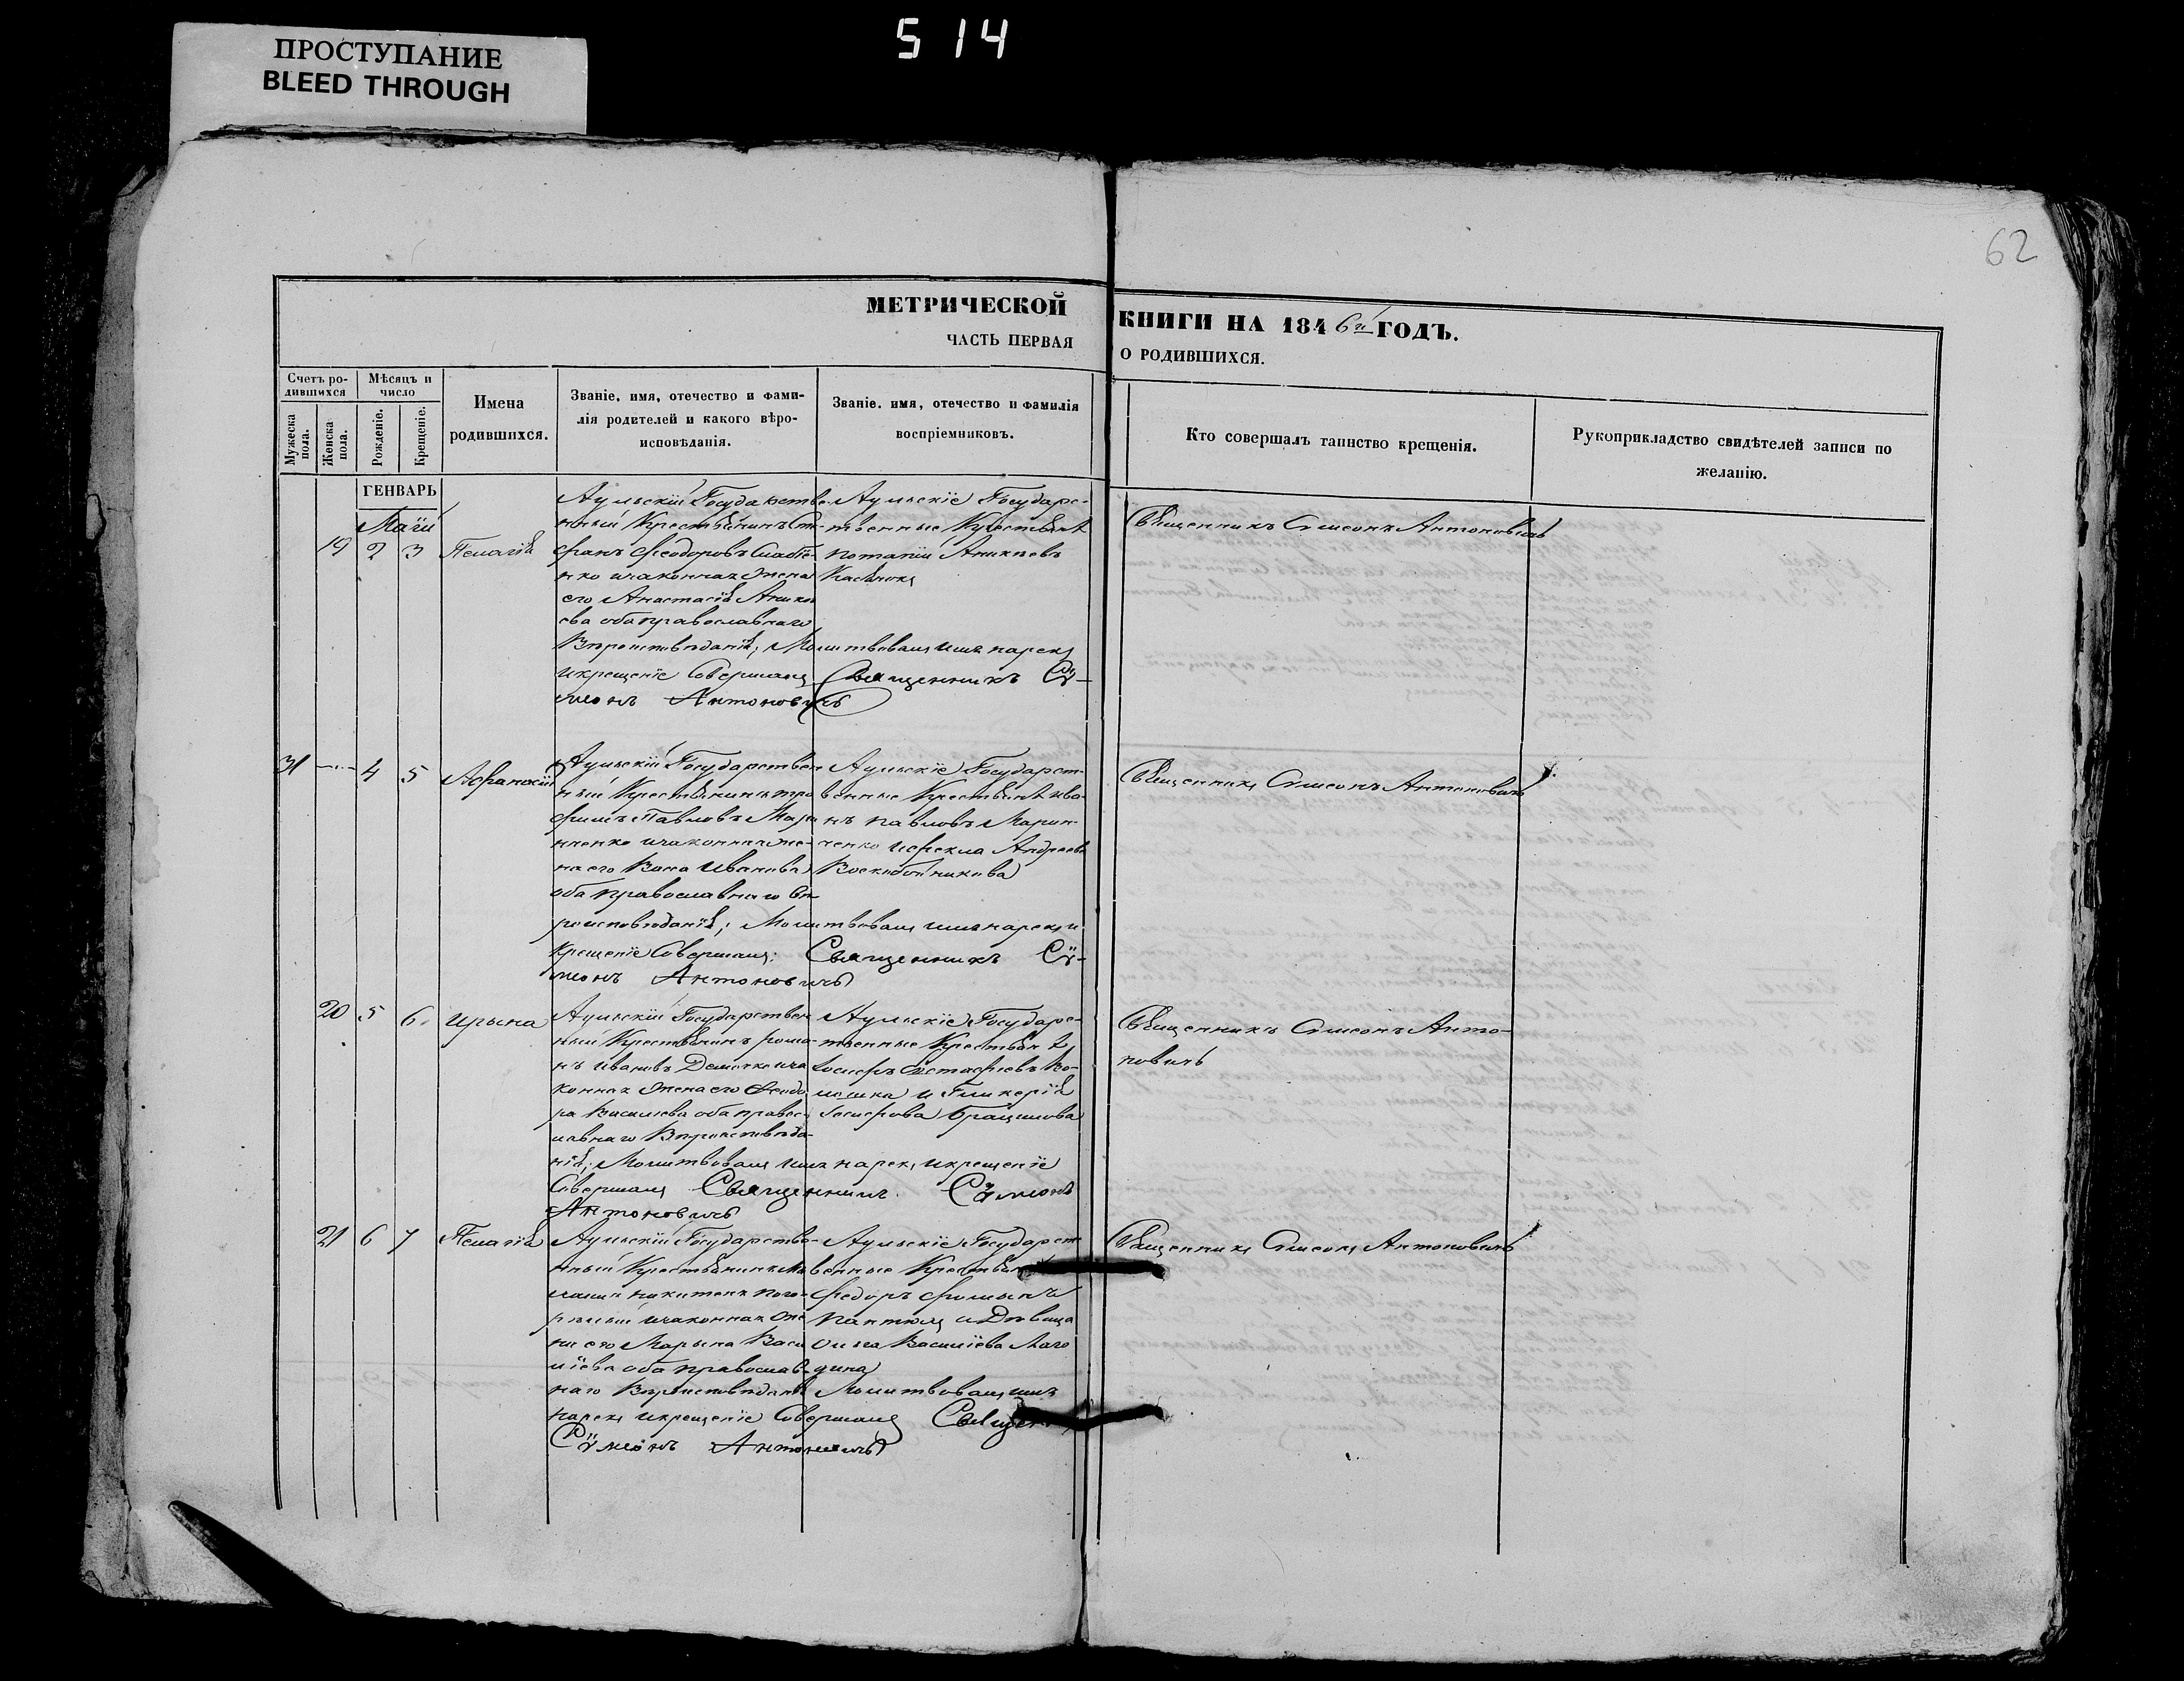 ПРОСТУПАНИЕ
BLEED THROUGH
514
62
МЕТРИЧЕСКОЙ КНИГИ НА 1846й ГОДЪ.
ЧАСТЬ ПЕРВАЯ О РОДИВШИХСЯ.
Счетъ ро-
дившихся
Мужеска
пола.
Женска
пола.
Мѣсяцъ и
число
Рожденіе.
Крещеніе.
Имена
родившихся.
Званіе, имя, отечество и фами-
лія родителей и какого вѣро-
исповѣданія.
Званіе, имя, отечество и фамилія
воспріемниковъ.
Кто совершалъ таинство крещенія.
Рукоприкладство свидѣтелей записи по
желанію.
ГЕНВАРЬ
Маій
19 2 3 Пелагія
Аульскій Государстве-
нный Крестьянинъ Сте-
фанъ Феодоровъ
законная жена
его Анастасія
ева оба православнаго
Вѣроисповѣданія; Молитвовалъ имя нарекъ
икрещеніе Совершалъ Священникъ Сѵ-
меонъ Антоновичъ
Аульскіе Государс-
твенные Крестьяне
потапій
Священникъ Симеонъ Антоновичъ
31 4 5 Афанасій
Аульскій Государствен
ный Крестьянинъ тро
фимъ Павловъ Мари
нченко изаконная же-
на его Ивановa
оба православнаго Вѣ
роисповѣданія; Молитвовалъ имя нарекъ и
Крещеніе Совершалъ: Священникъ Сѵ-
меонъ Антоновичъ
Аульскіе Государст-
венные Крестьяне ива
нъ павловъ Марин-
ченко ифекла Андреева
Воскобойникова
Священникъ Симеонъ Антоновичъ
20 5 6 Ирына
Аульскій Государствен
ный Крестьянинъ рома
нъ Ивановъ иза
конная жена его Феодо
ра Василіева оба правос-
лавнаго Вѣроисповѣда-
нія; Молитвовалъ имя нарекъ икрещеніе
Совершалъ Священникъ Сѵмеонъ
Антоновичъ
Аульскіе Государс-
твенные Крестьяне
Іосифъ Евстафіевъ Во-
лошка и Гликерія
Іосифова
Священникъ Симеонъ Анто-
новичъ
21 6 7 Пелагія
Аульскій Государстве-
нный Крестьянинъ
никитенъ пого-
рѣлый изаконная же
на его Марына Васи
ліева оба православ-
наго Вѣроисповѣданія Молитвовалъ имя
нарекъ икрещеніе Совершалъ
Сѵмеонъ Антоновичъ
Аульскіе Государст
венные
федоръ
и Дѣвица
Ольга Василіева
Священникъ Симеонъ Антоновичъ